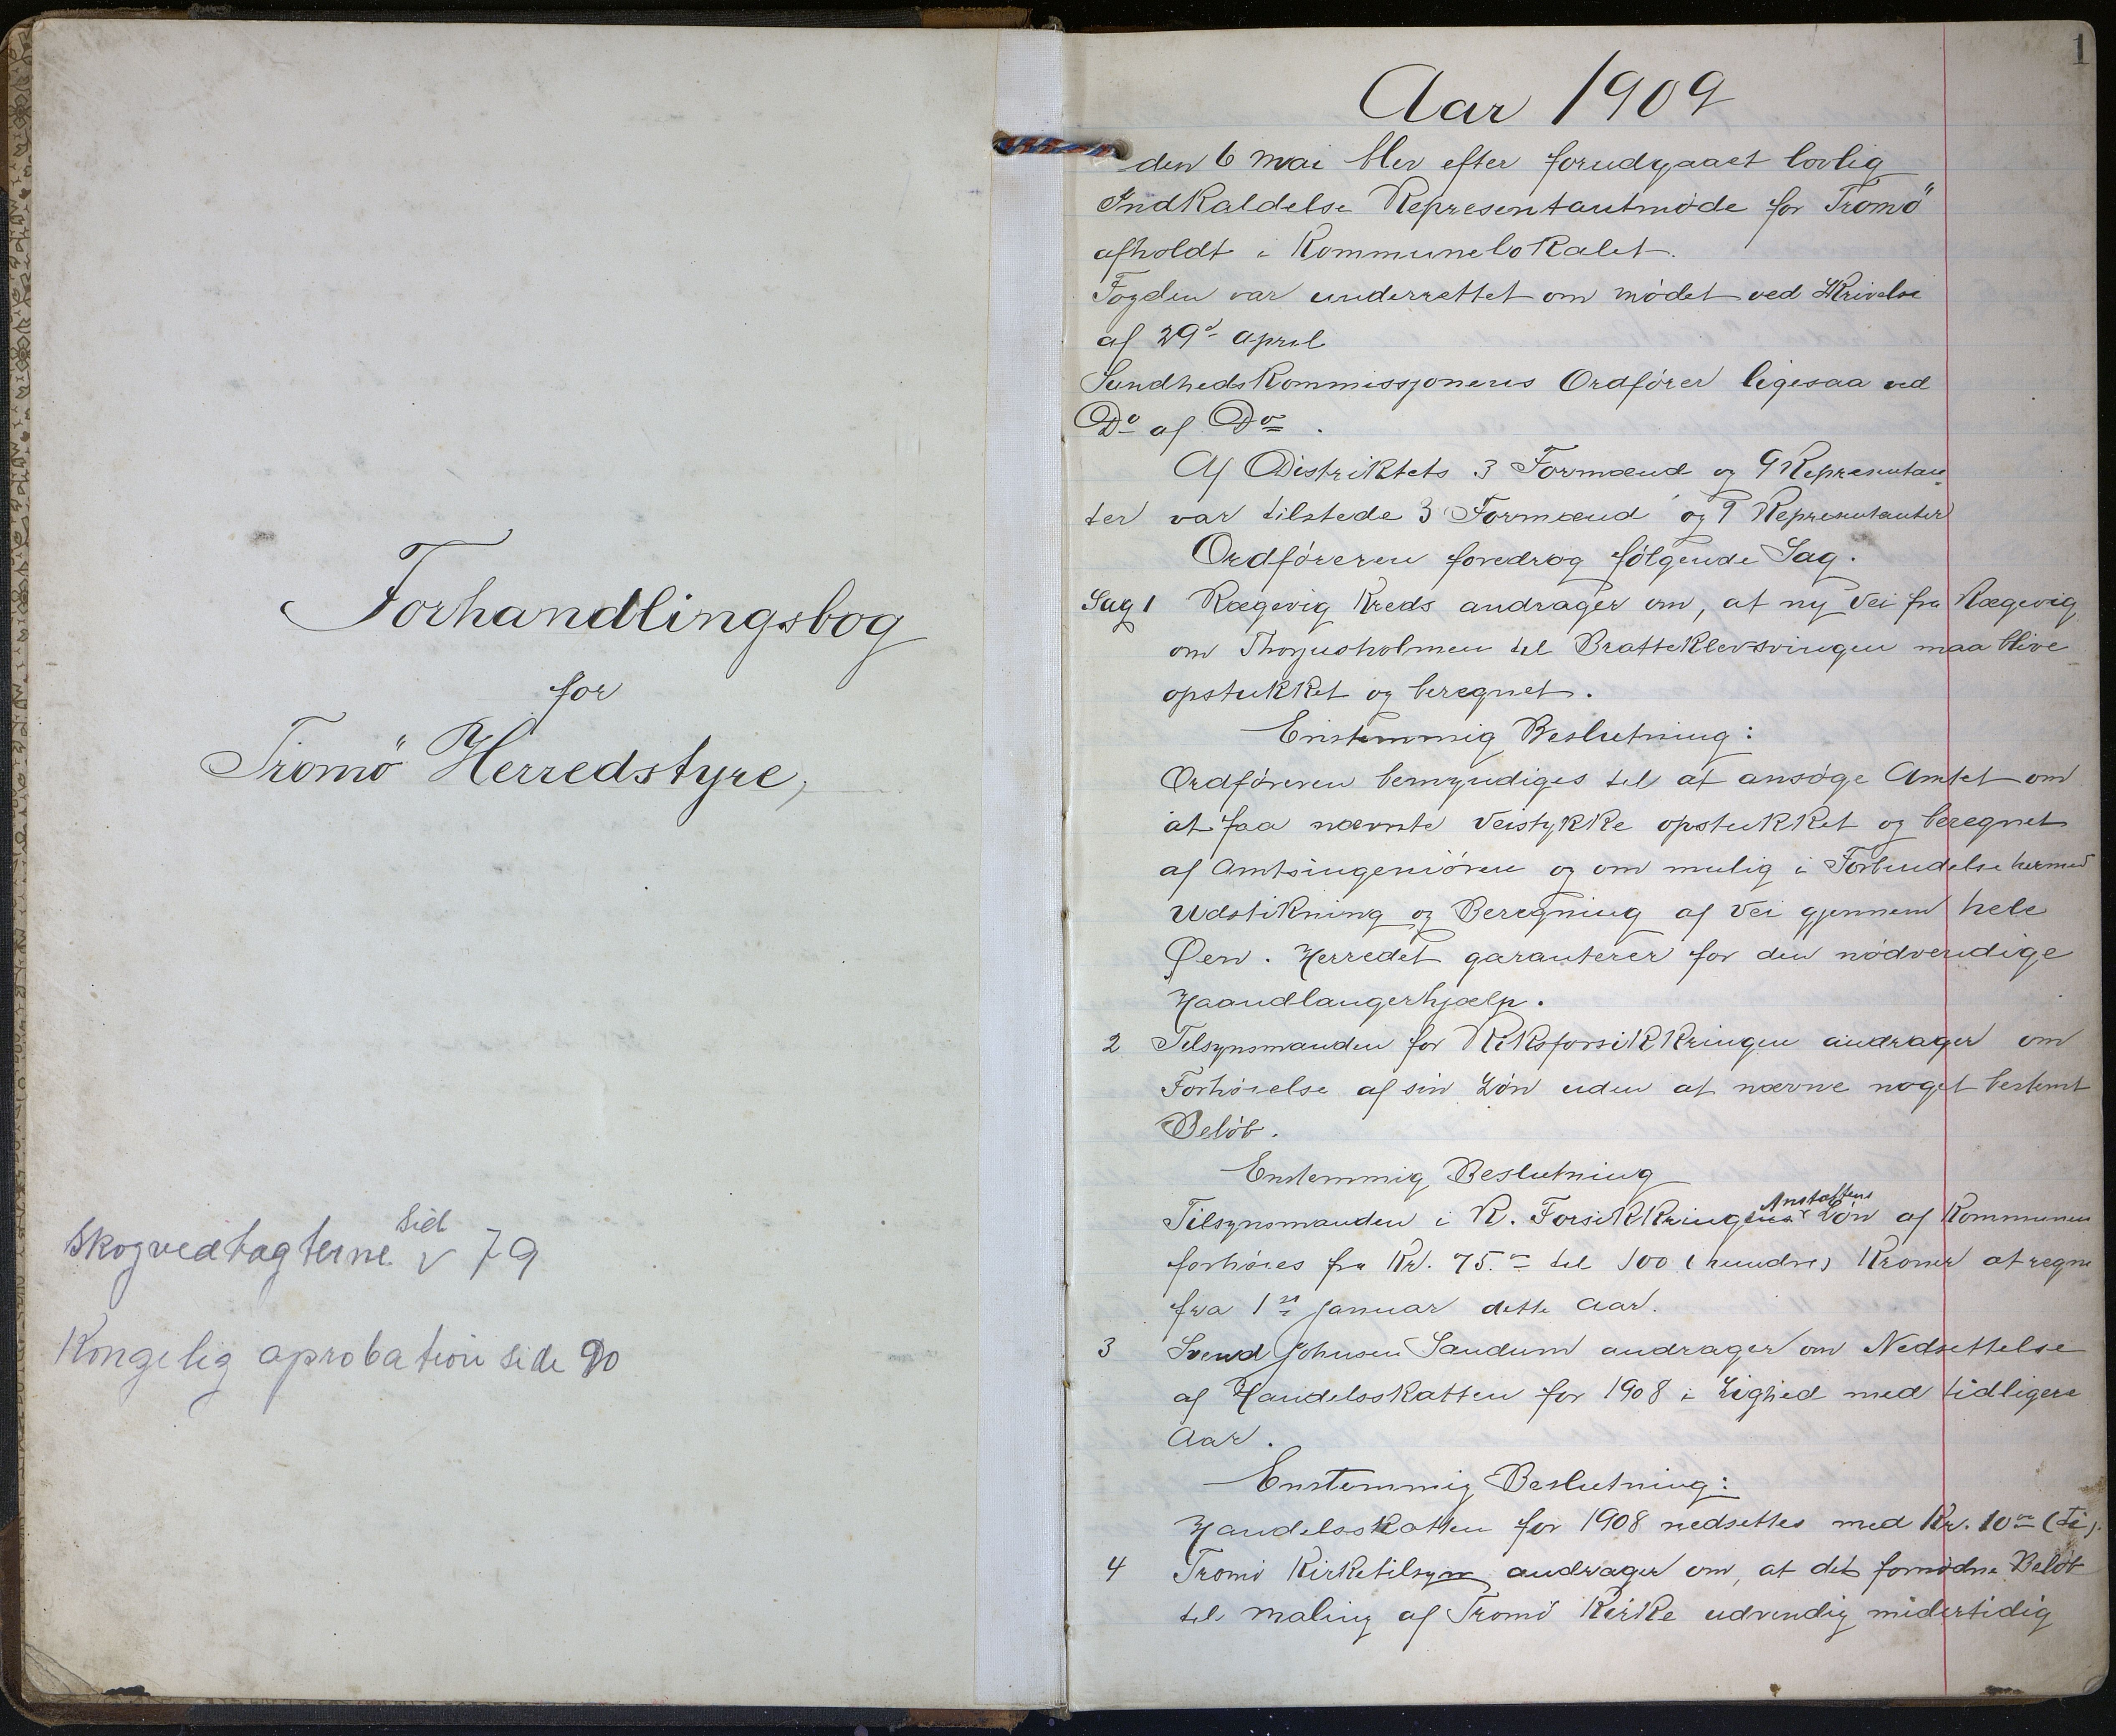 Forhandlingsbog
for
Tromö Herredstyre,
Skogvedtagterne v sid 79
Kongelig aprobation side 90
1
Aar 1909
den 6 mai blev efter forudgaaet lovlig
Indkaldelse Representantmøde for Tromö
afholdt i Kommunelokalet.
Fogden var underrettet om mödet ved Skrivelse
af 29d april
Sundhedskommissjonens Ordförer ligesaa ved
Do af Do.
Af Distriktets 3 Formænd og 9 Representan
ter var tilstede 3 Formænd og 9 Representanter
Ordföreren foredrog fölgende Sag.
Sag 1 Rægevig Kreds andrager om, at ny Vei fra Rægevig
om Thorjusholmen til Bratteklevsvingen maa blive
opstukket og beregnet.
Enstemmig Beslutning:
Ordföreren bemyndiges til at ansöge Amtet om
at faa nævnte Veistykke opstukket og beregnet
af Amtsingeniören og om mulig i Forbindelse hermed
Udstikning og Beregning af Vei gjennem hele
Øen. Herredet garanterer for den nödvendige
Haandlangerhjælp.
2 Tilsynsmanden for Riksforsikkringen andrager om
Forhöielse af sin Lön uden at nævne noget bestemt
Belöb.
Enstemmig Beslutning
Tilsynsmanden i R. Forsikkringens Anstaltens Lön af Kommunen
forhöies fra Kr. 75.- til 100 (hundre) Kroner at regne
fra 1st Januar dette Aar.
3 Svend Johnsen Sandum andrager om Nedsettelse
af Handelsskatten for 1908 i Lighed med tidligere
Aar.
Enstemmig Beslutning:
Handelsskatten for 1908 nedsettes med Kr. 10 (ti).
4 Tromö Kirketilsyn andrager om, at det fornödne Belöb
til maling af Tromö Kirke udvendig midertidig